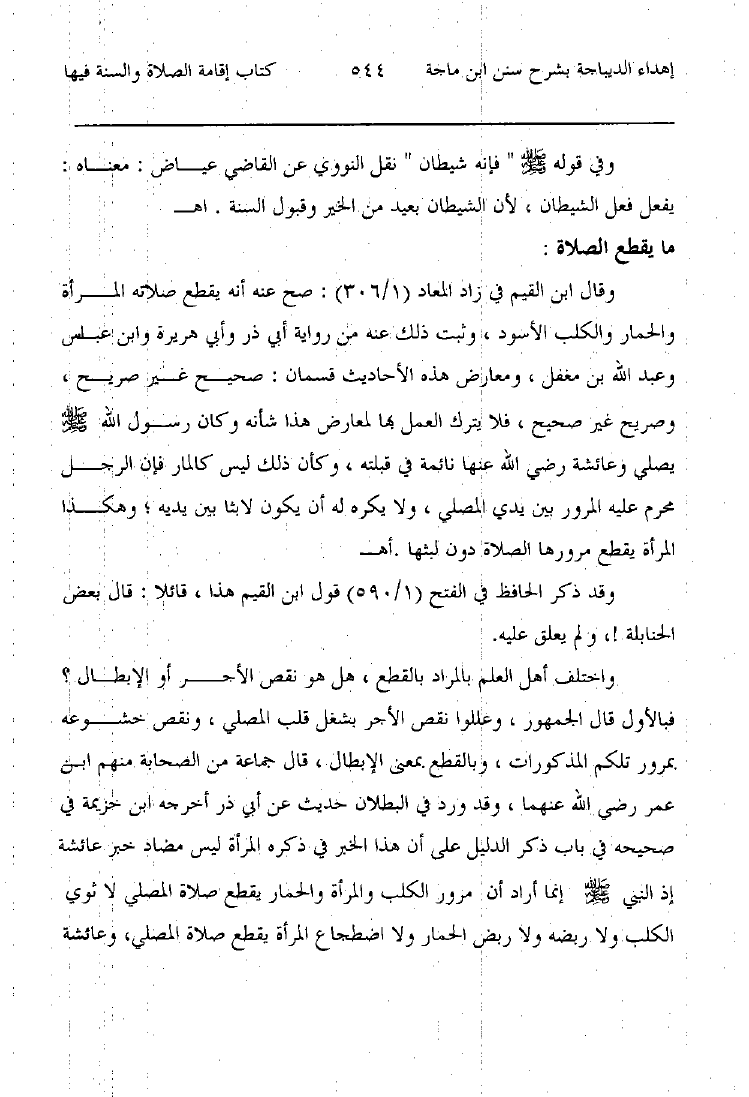 إهداء الديباجة بشرح سنن ابن ماجة ٥٤٤ كتاب إقامة الصلاة والسنة فيها
وفي قوله ﷺ " فإنه شيطان " نقل النووي عن القاضي عيـــاض : معنـــاه :
يفعل فعل الشيطان ، لأن الشيطان بعيد من الخير وقبول السنة . اهـــ
ما يقطع الصلاة :
وقال ابن القيم في زاد المعاد (٣٠٦/١) : صح عنه أنه يقطع صلاته المـــرأة
والحمار والكلب الأسود ، وثبت ذلك عنه من رواية أبي ذر وأبي هريرة وابن عبـاس
وعبد الله بن مغفل ، ومعارض هذه الأحاديث قسمان : صحيـــح غـــير صريـــح ،
وصريح غير صحيح ، فلا يترك العمل بها لمعارض هذا شأنه وكان رســـول الله ﷺ
يصلي وعائشة رضي الله عنها نائمة في قبلته ، وكأن ذلك ليس كالمار فإن الرجـــل
محرم عليه المرور بين يدي المصلي ، ولا يكره له أن يكون لابثا بين يديه ؛ وهكـــذا
المرأة يقطع مرورها الصلاة دون لبثها .أهـــ
وقد ذكر الحافظ في الفتح (٥٩٠/١) قول ابن القيم هذا ، قائلا : قال بعض
الحنابلة !، و لم يعلق عليه.
واختلف أهل العلم بالمراد بالقطع ، هل هو نقص الأجـــر أو الإبطـــال ؟
فبالأول قال الجمهور ، وعللوا نقص الأجر بشغل قلب المصلي ، ونقص خشـــوعه
بمرور تلكم المذكورات ، وبالقطع بمعنى الإبطال ، قال جماعة من الصحابة منهم ابـــن
عمر رضي الله عنهما ، وقد ورد في البطلان حديث عن أبي ذر أخرجه ابن خزيمة في
صحيحه في باب ذكر الدليل على أن هذا الخبر في ذكره المرأة ليس مضاد خبر عائشة
إذ النبي ﷺ إنما أراد أن مرور الكلب والمرأة والحمار يقطع صلاة المصلي لا ثوي
الكلب ولا ربضه ولا ربض الحمار ولا اضطجاع المرأة يقطع صلاة المصلي، وعائشة